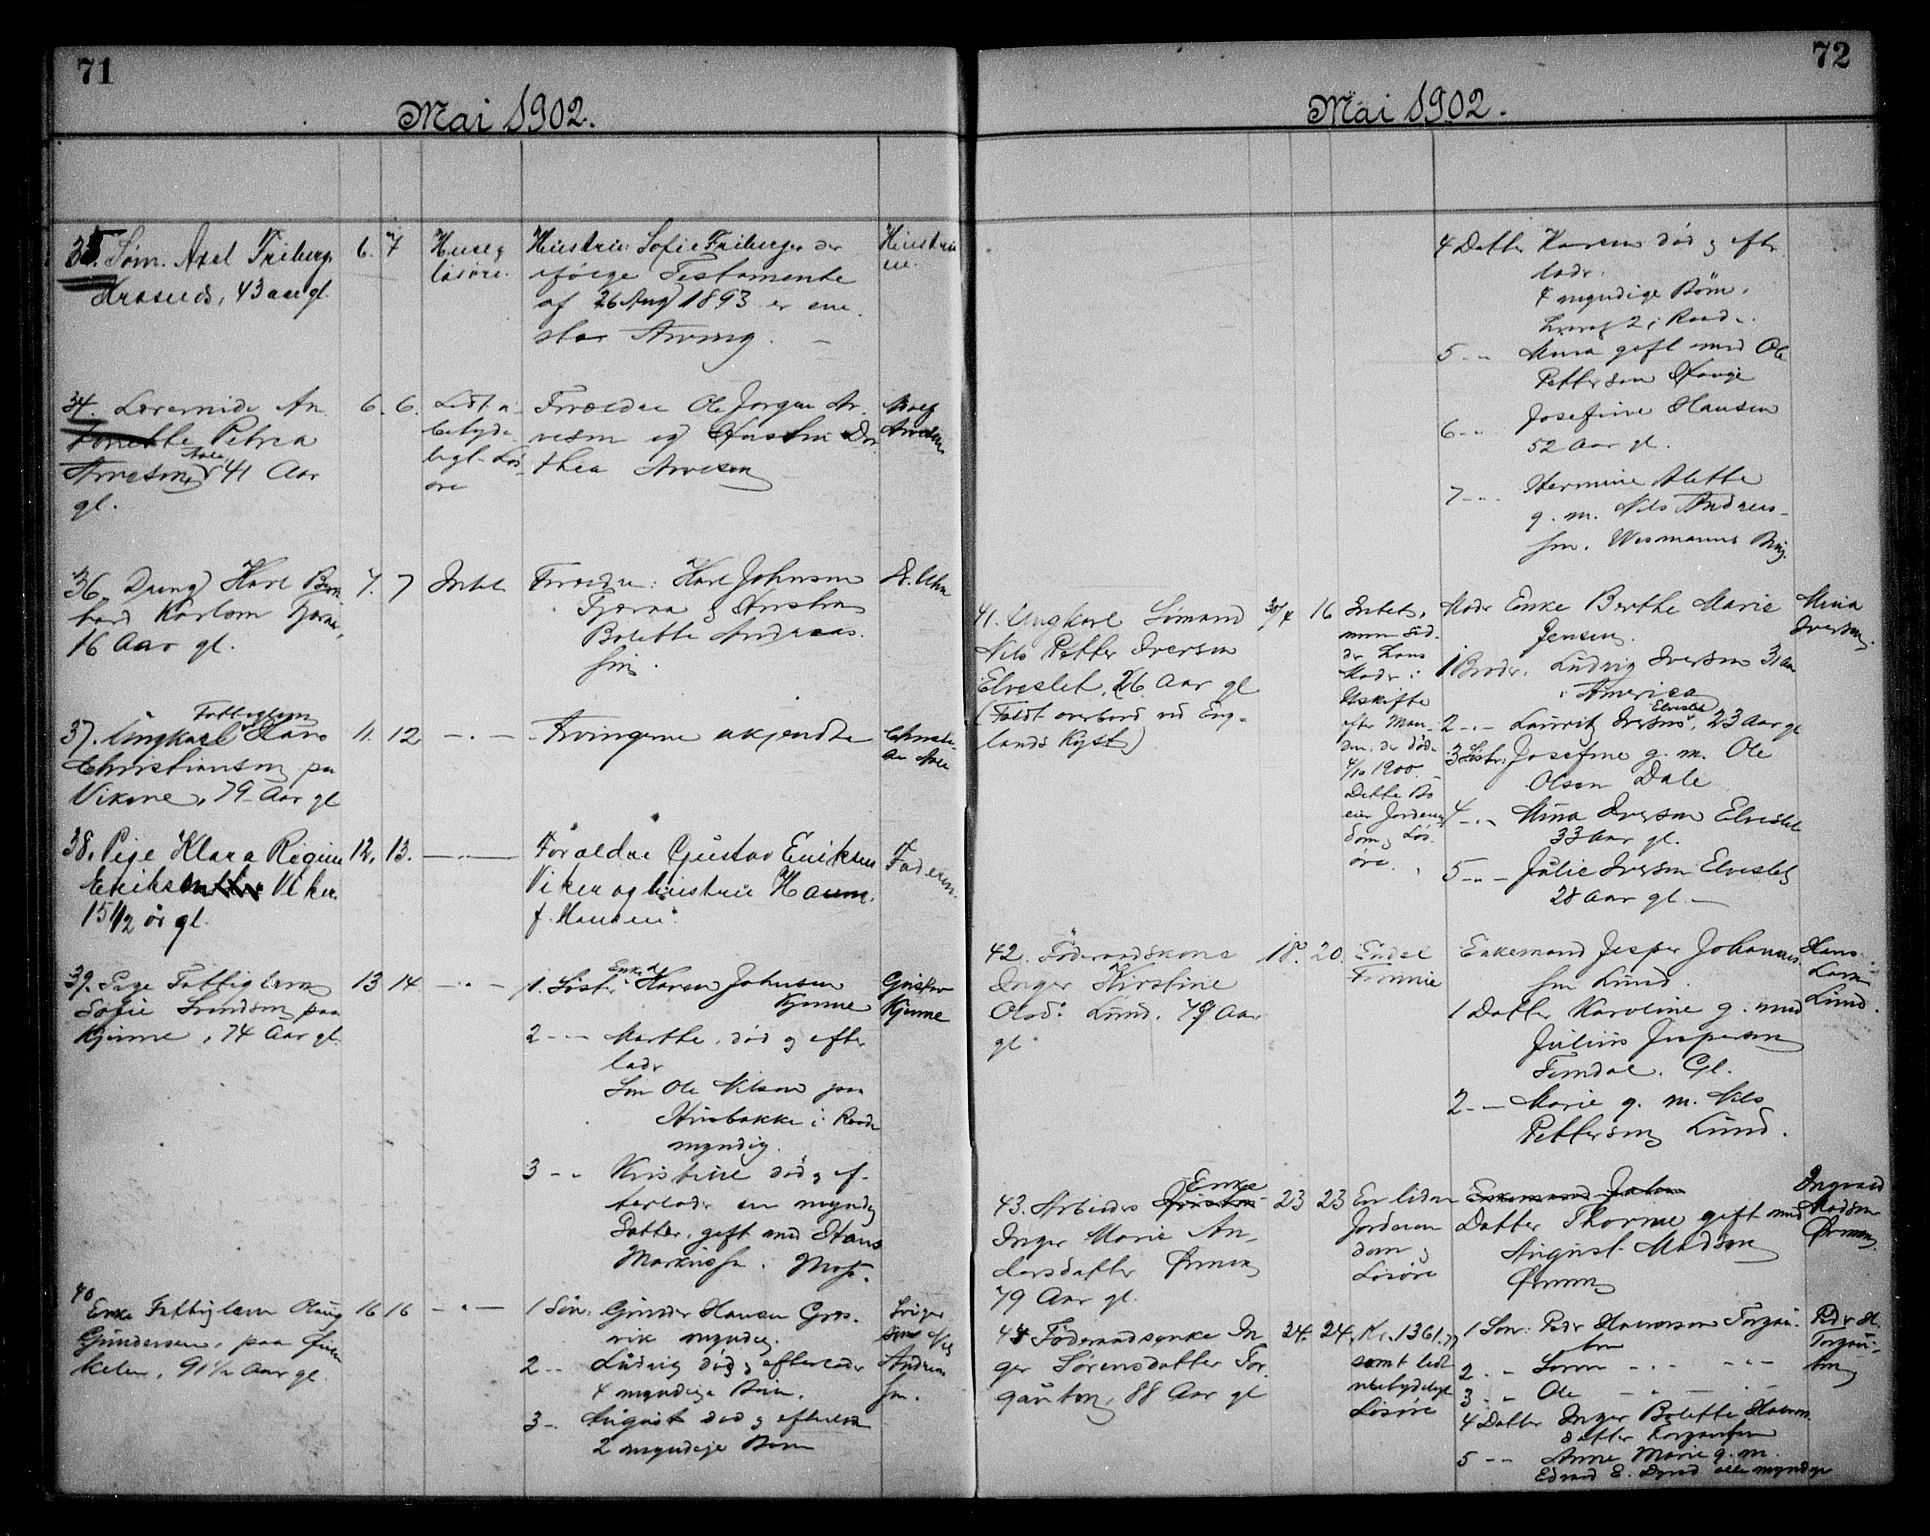 71
Mai 1902.
35. Søm. Axel Friberg,
43 aar gl.
6. 7
Hus og
løsøre.
Hustru Sofie Friberg, der
ifølge Testamente
af 26 Aug 1893 er ene-
ste Arving. —
Hustru
en.
34. An-
Petrea
Arnesen, 41 Aar
gl.
6. 6.
Lidt u-
betyde-
ligt Løs-
øre
Forældre Ole Jørgen Ar-
nesen og Hustru Do-
rthea Arnesen
Arnesen
36. Dreng Karl Bern-
hard Karlsen Tjerna,
16 Aar gl.
7. 7
Intet
Forældre: Karl Johnsen
Tjerna & Hustru
Bolette Andreas-
sen.
37. Ungkarl Fattiglem Hans
Christiansen paa
Vikene, 79 Aar gl
11. 12
— " —
Arvingerne ukjendte
38. Pige Klara Regine
Eriksen Viker
15 1/2 år gl.
12. 13.
— " —
Forældre Gustav Eriksen
Viker og hustru
f. Hansen.
Faderen.
39. Pige Fattiglem
Sofie Svendsen paa
Kjinne, 74 Aar gl.
13 14
— " —
1. Søster Enke Karen Johnsen
Kjinne
2 - - Marthe, død og efter-
lader
Søn Ole Nilsen paa
Husbakke i Raade
myndig.
3 - - Kristine død og ef-
terlader en myndig
Datter, gift med Hans
Markussen. Moss.
Gustav
Kjinne
40
Enke Fattiglem Olaug
Gundersen, paa
91 1/2 Aar gl.
16 16
— " —
1 Søn: Gunder Hansen
myndig.
2 - - Ludvig død, efterlader
4 myndige Børn.
3 - August død og efterlader
2 myndige Børn
Sviger
søn
Andreas-
sen.
72
Mai 1902.
4 Datter Karen død og efter-
lader
4 myndige Børn,
2 i Raade.
5 - - Mina gift med Ole
Pettersen Hauge
6 - - Josefine Hansen
52 Aar gl.
7 - - Hermine Alette
g. m. Nils Andreas-
sen,
41. Ungkarl Sømand
Nils Petter Iversen
Elveslet, 26 Aar gl
(Faldt overbord ved Eng-
lands Kyst)
30/4 16
Intet,
men sid-
der hans
Moder i
Uskifte
efter Man-
den, der døde
4/10 1900.
Dette Bo
eier Jordeien-
dom og Løs-
øre.
Moder Enke Berthe Marie
Jensen.
1 Broder: Ludvig Iversen 31 Aar
i America
2 - " - Lauritz Iversen Elveslet, 23 Aar gl
3 Søster: Josefine g. m. Ole
Olsen Dale
4 - " - Mina Iversen Elveslet
33 Aar gl.
5 - " - Julie Iversen Elveslet
28 Aar gl. —
Mina
Iversen.
42. Føderaadskone
Inger Kirstine
Olsd: Lund. 79 Aar
gl.
18. 20.
Endel
Enkemand Jesper Johannes-
sen Lund.
1 Datter Karoline g. med
Julius Jespersen
Gl.
2 - - Marie g. m. Nils
Pettersen Lund.
Hans
Lund.
43. Arbeider Enke
Inger Marie An-
dersdatter Ørmen
79 Aar gl.
23 23
En liden
Jordeien-
dom og
Løsøre
Datter Thorine gift med
August Madsen
Ørmen
Ingvald
Madsen
Ørmen.
44 Føderaadsenke In-
ger Sørensdatter Tor-
gauten, 88 Aar gl
24. 24.
Kr. 1361.77
samt lidt
ubetydeligt
Løsøre
1 Søn: Peder Halvorsen Torgau-
ten
2 - " Søren - " - - " -
3 - " Ole - " -
4 Datter Inger Bolette Halvors-
datter Torgauten
5 - - Anne Marie g. m.
Edvard E. alle myndige
Peder H.
Torgau-
ten